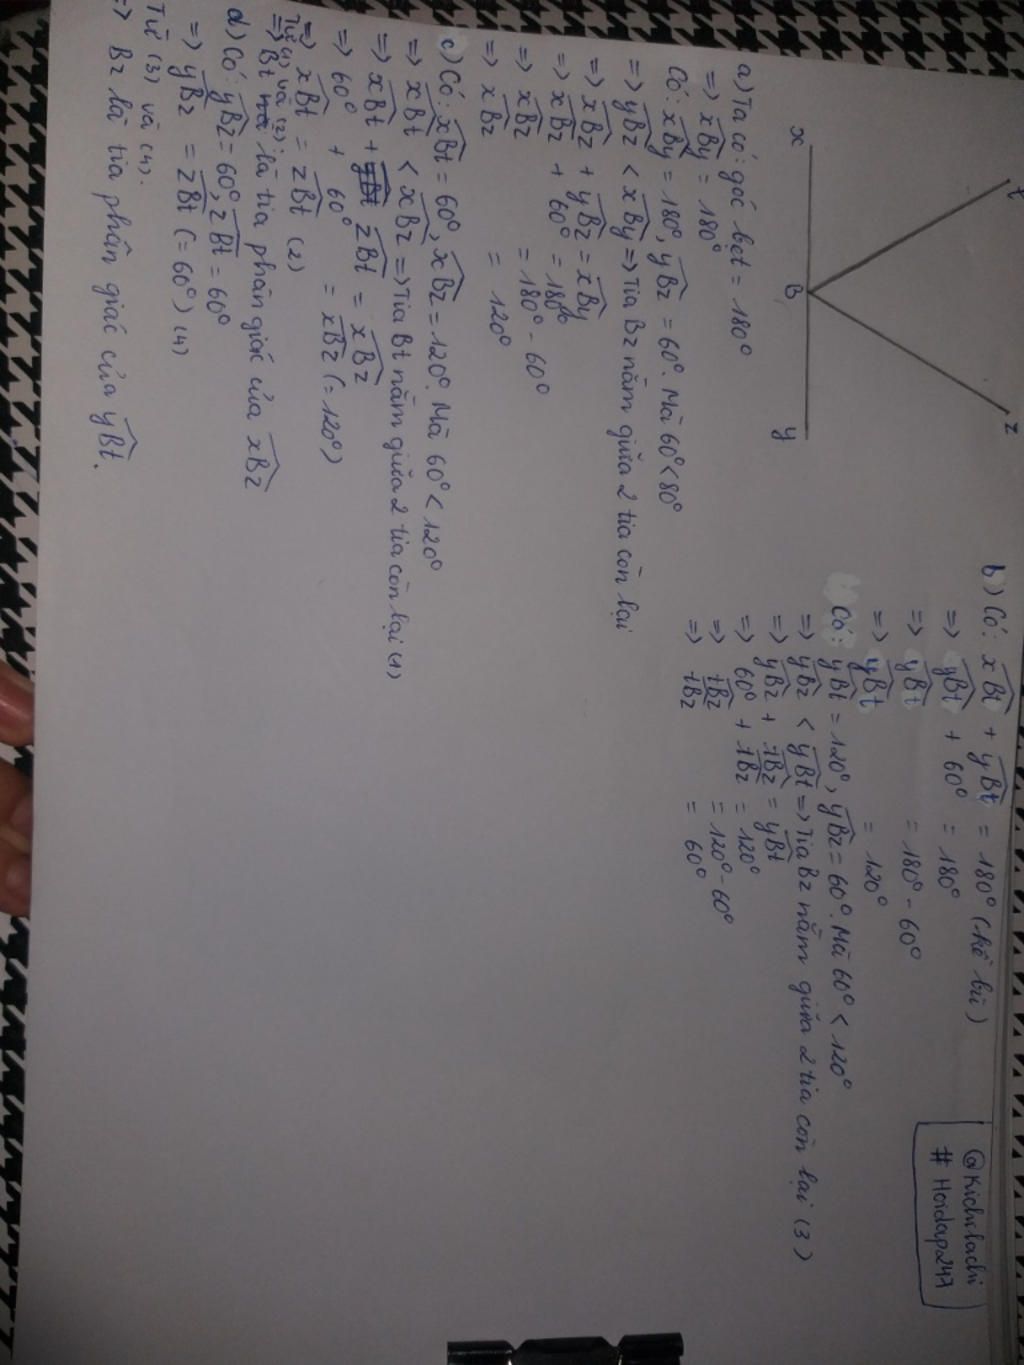 t
z
x
B
y
a) Ta có: góc bẹt = 180°
=> xBy = 180°
Có: xBy = 180°, yBz = 60°. Mà 60° < 80°
=> yBz < xBy => Tia Bz nằm giữa 2 tia còn lại
=> xBz + yBz = xBy
=> xBz + 60° = 180°
=> xBz = 180° - 60°
=> xBz = 120°
c) Có: xBt = 60°, xBz = 120°. Mà 60° < 120°
=> xBt < xBz => Tia Bt nằm giữa 2 tia còn lại (1)
=> xBt + zBt = xBz
=> 60° + 60° = xBz (= 120°)
=> xBt = zBt (2)
Từ (1) và (2):
=> Bt là tia phân giác của xBz
d) Có: yBz = 60°, zBt = 60°
=> yBz = zBt (= 60°) (4)
Từ (3) và (4).
=> Bz là tia phân giác của yBt.
b) Có: xBt + yBt = 180° (kề bù)
=> yBt + 60° = 180°
=> yBt = 180° - 60°
=> yBt = 120°
Có: yBt = 120°, yBz = 60°. Mà 60° < 120°
=> yBz < yBt => Tia Bz nằm giữa 2 tia còn lại (3)
=> yBz + tBz = yBt
=> 60° + tBz = 120°
=> tBz = 120° - 60°
=> tBz = 60°
@Kichibachi
# Hoidap247